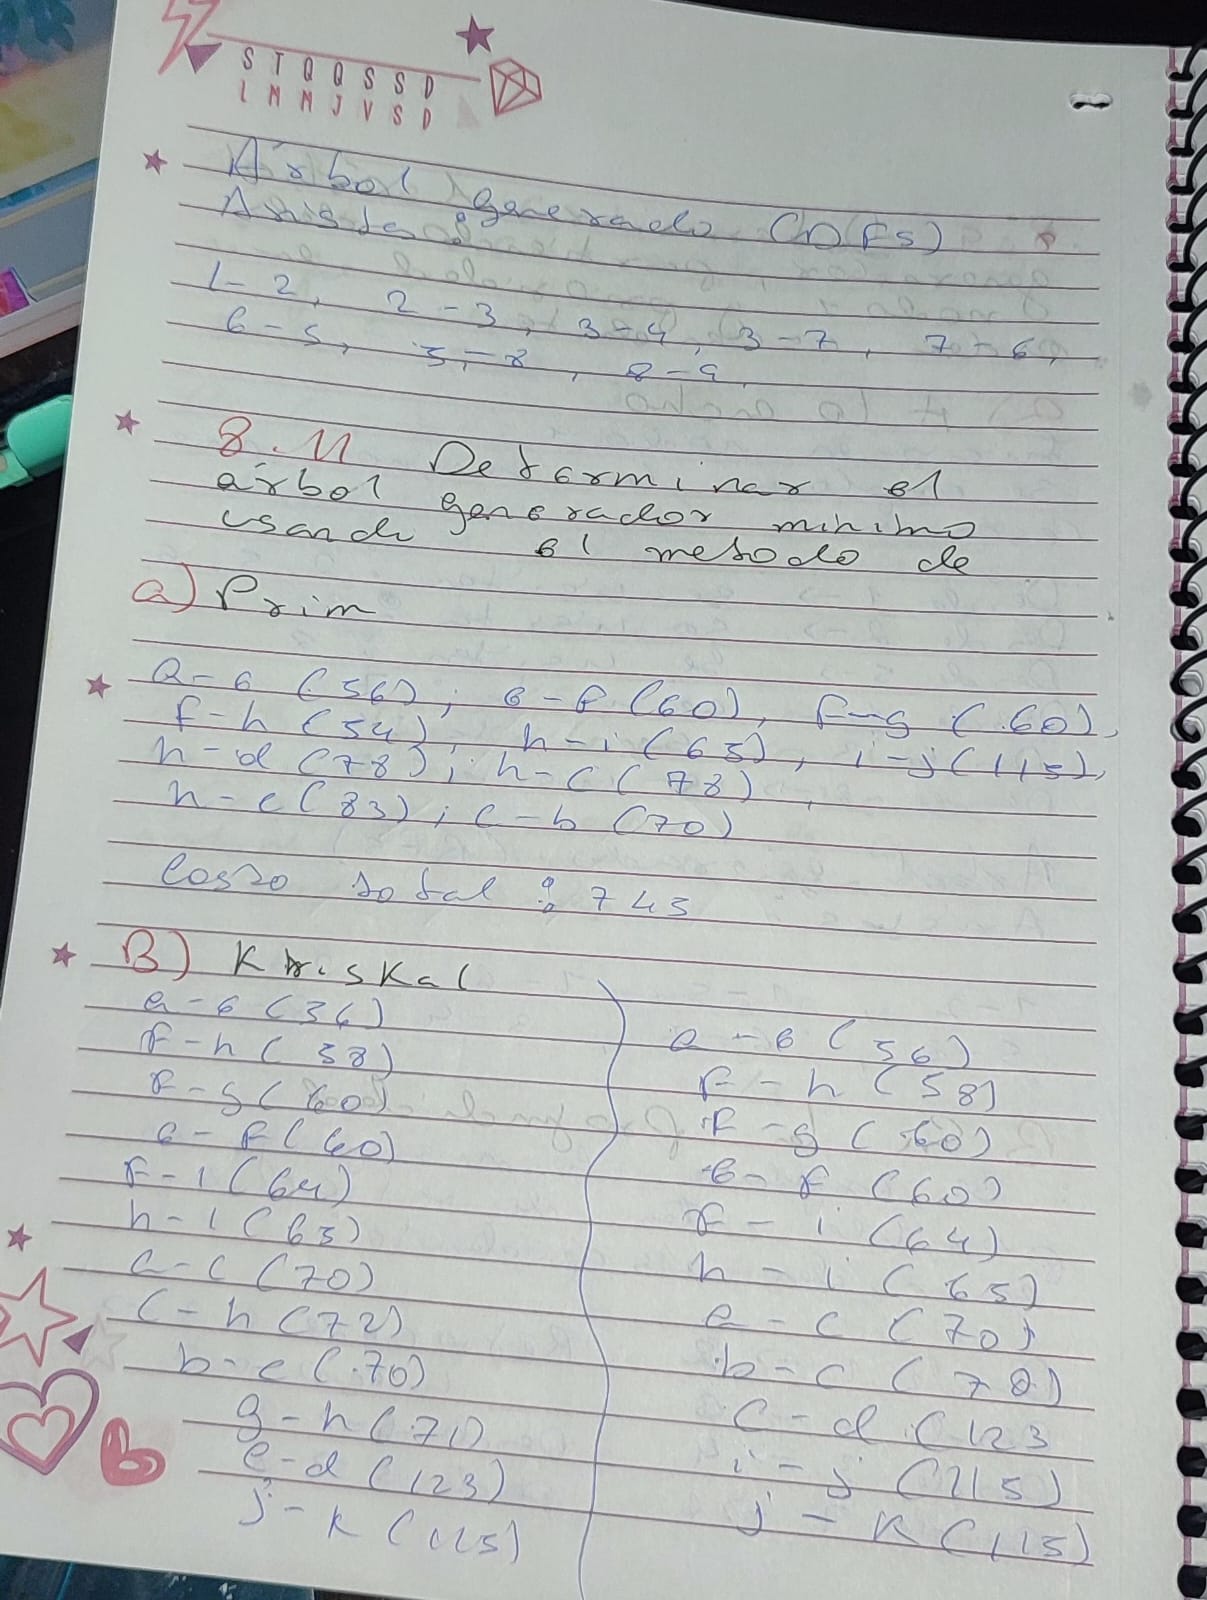 S T Q Q S S D
L M M J V S D
Árbol generado (DFS)
Arista:
1-2, 2-3, 3-4, 3-7, 7-6,
6-5, 5-8, 8-9
8.11 Determinar el
árbol generador minimo
usando el metodo de
a) Prim
a-e (56), e-f (60), f-g (60),
f-h (54), h-i (65), i-j (115),
h-d (78), h-c (78),
h-c (83), c-b (70)
Costo total: 743
B) Kruskal
a-e (36)
f-h (58)
f-g (60)
e-f (60)
f-i (64)
h-i (65)
a-c (70)
c-h (72)
b-c (70)
g-h (71)
e-d (123)
j-k (115)
a-e (56)
f-h (58)
f-g (60)
e-f (60)
f-i (64)
h-i (65)
a-c (70)
b-c (70)
c-d (123
i-j (115)
j-k (115)